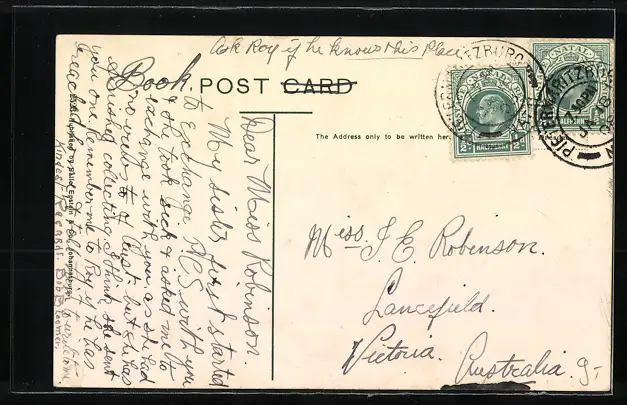 Ask Roy if he knows this Place
Book. POST CARD
The Address only to be written here.
NATAL
HALFPENNY
NATAL
HALFPENNY
PIETERMARITZBURG
Dear Miss Robinson.
My sister first started
to Exchange PCS with you
& she took sick & asked me to
exchange with you as she had
no views to of least but she has
finished collecting I think she sent
you one. Remember me to Roy if he has
reached
Kindest Regards. Bob
Miss. J. E. Robinson.
Lancefield.
Victoria.
Australia.